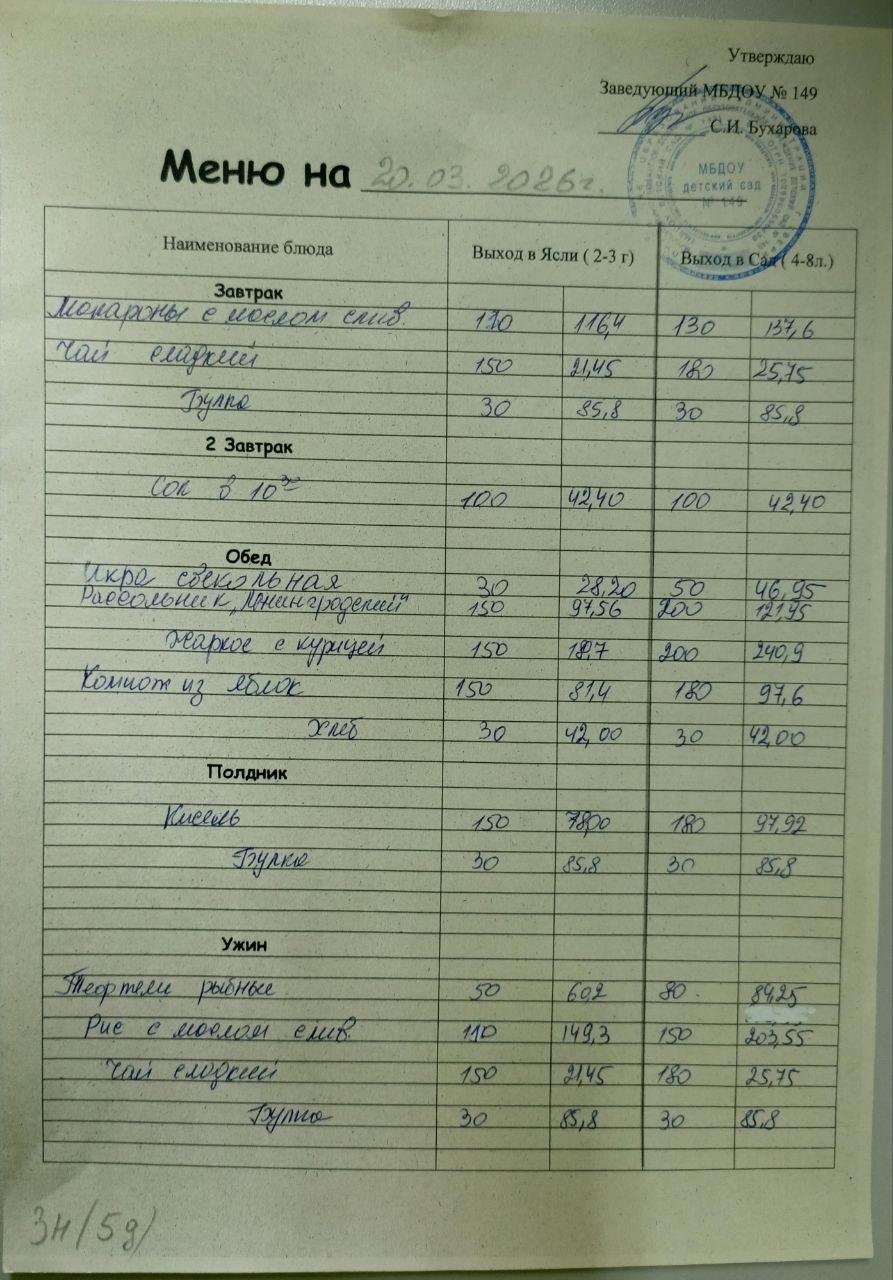 Утверждаю
Заведующий МБДОУ № 149
С.И. Бухарова
МБДОУ
детский сад
№ 149
Меню на 20.03.2026г.
Наименование блюда Выход в Ясли ( 2-3 г) Выход в Сад ( 4-8л.)
Завтрак
Макароны с маслом слив. 110 116,4 130 137,6
Чай сладкий 150 21,45 180 25,75
Булка 30 85,8 30 85,8
2 Завтрак
Сок в 10 30 100 42,40 100 42,40
Обед
Икра свекольная 30 28,20 50 46,95
Рассольник „Ленинградский" 150 97,56 200 121,95
Жаркое с курицей 150 200 240,9
Компот из яблок 150 81,4 180 97,6
Хлеб 30 42,00 30 42,00
Полдник
Кисель 150 78,00 180 97,92
Булка 30 85,8 30 85,8
Ужин
Тефтели рыбные 50 60,2 80 84,25
Рис с маслом слив. 110 149,3 150 203,55
Чай сладкий 150 21,45 180 25,75
Булка 30 85,8 30 85,8
3Н/5д)